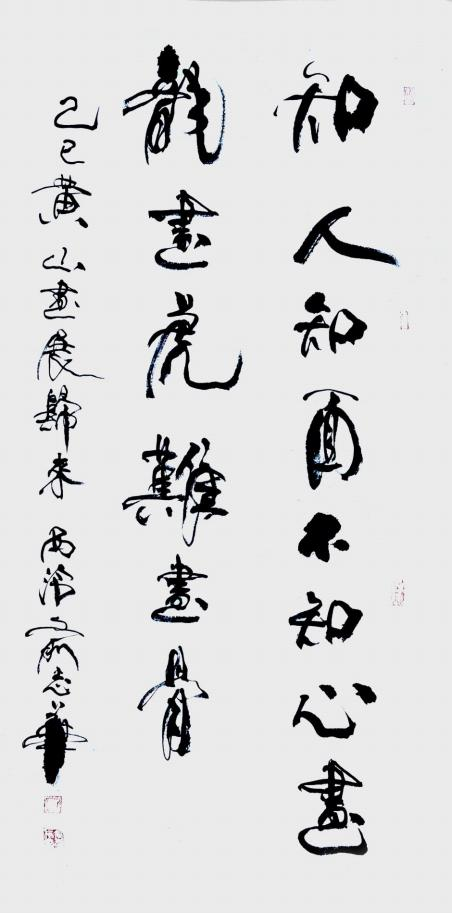 知人知面不知心畫
龍畫虎難畫骨
己巳黃山畫展歸來 西泠 志華